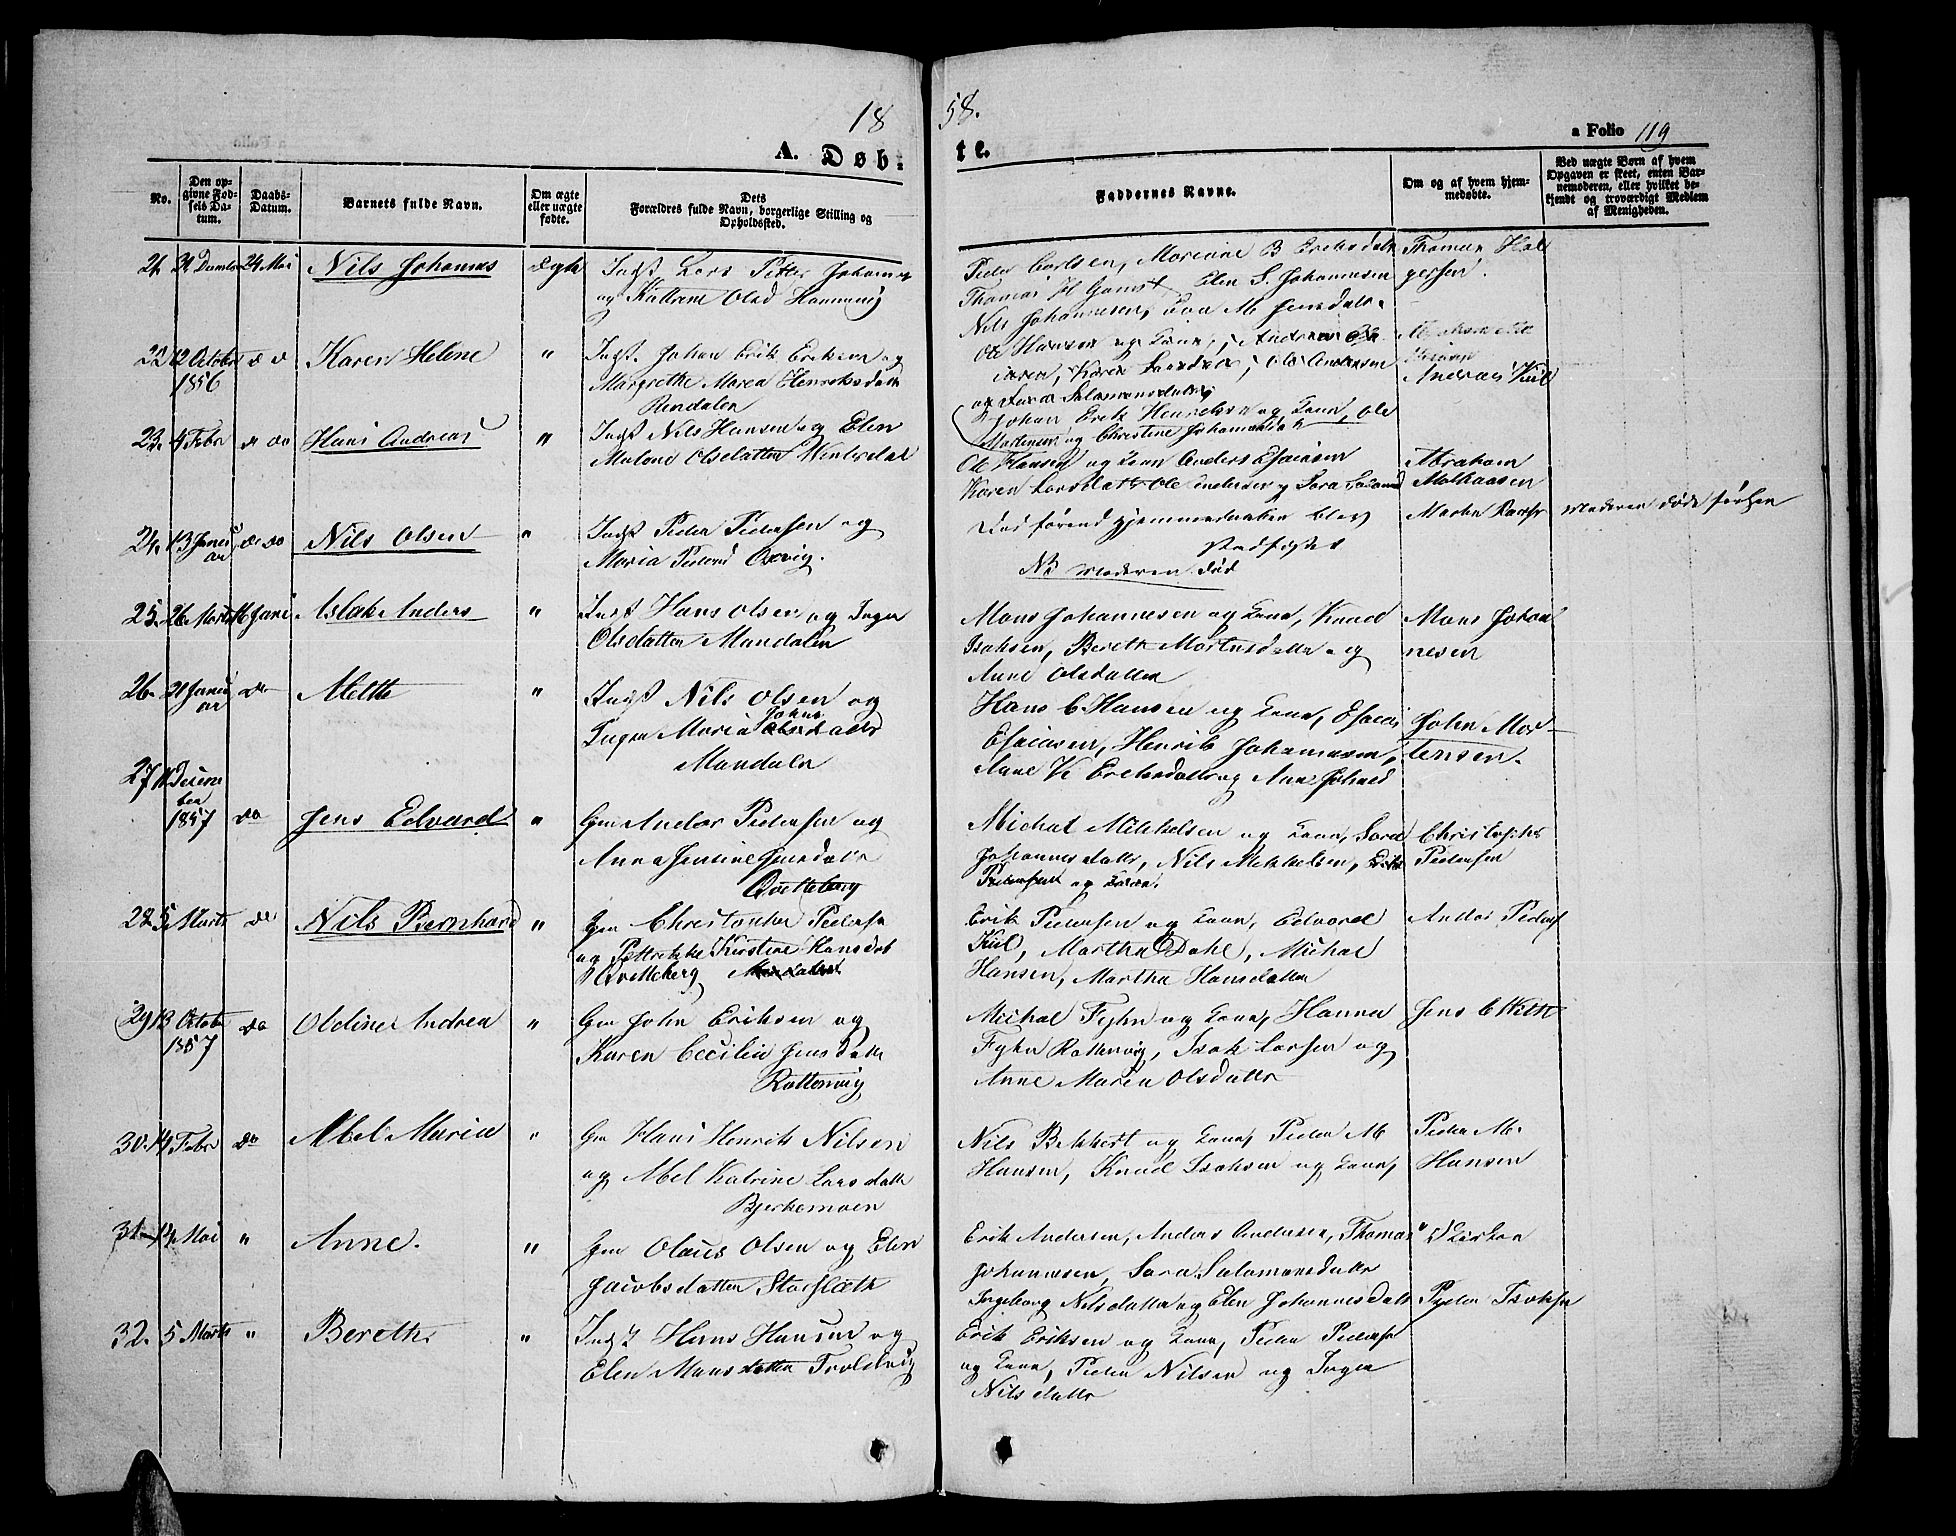 1858.
a Folio 119
A. Døbte.
No.
Den opgivne Fødsels Datum.
Daabs-Datum.
Barnets fulde Navn.
Om ægte eller uægte fødte.
Dets Forældres fulde Navn, borgerlige Stilling og Opholdssted.
Faddernes Navne.
Om og af hvem hjemmedøbte.
Ved uægte Børn af hvem Opgaven er skeet, enten Barnemoderen, eller hvilket bekjendt og troværdigt Medlem af Menigheden.
21. 24 Mai Nils Johannes Ægte Indst Lars Petter
og Kattrine Olsd
Peder Carlsen,
Thomas H Elen S. Johannesen
Nils Johannesen,
Thomas Hol
gersen.
22 12 October do Karen Helene " Indst. Johan Erik Eriksen og
1856
Margrethe Maria Henriksdatt
Ole Hansen og Kone,
Andreas Kiil
23. 4 Febr do Hans Andreas " Indst Nils Hansen og Elen
Malene Olsdatter
Johan Erik Henriksen og Kone, Ole
Mortensen og Christine
Ole Hansen og Kone Anders Esaiasen
Karen Larsdatt Ole Andersen og Sara
Abraham
Mathiasen
24. 13 Janu do Nils Olsen " Indst Peder Pedersen og
ar
Maria Pedersd
Ved hjemmedaaben blev
stadfæstet
NB Moderen død
Moderen døde
25. 26 Marts 16 Juni Aslak Anders " Indst Hans Olsen og Inger
Olsdatter Mandalen
Mons Johannesen og Kone, Knud
Isaksen, Bereth Mortensdatter og
Anne Olsdatter
Mons Johan
nesen
26. 21 Janu do Mette " Indst Nils Olsen og
ar
Inger Maria Johnsdatter
Mandalen
Hans C. Hansen og Kone, Esaias
Esaiasen, Henrik Johannesen,
Anne K Eriksdatter og Ane
John Mor-
tensen.
27 11 Decem
ber
1857 do Jens Edvard " Gm Andor Pedersen og
Anna Jensine Jensdatt
Qvitteberg
Michal Mikkelsen og Kone, Sara
Johannesdatter, Nils Mikkelsen, Erik
Pedersen og Kone.
Christopher
Pedersen
28. 5 Marts do Nils Bernhard " Gm Christopher Pedersn
og Petrikke Kirstine Hansdat
Qvitteberg
Erik Pedersen og Kone, Edvard
Kiil, Martha Dahl, Michal
Hansen, Martha Hansdatter
Andor Peders
29 13 October do Oldine Andrea " Gm John Eriksen og
1857
Karen Cecilia Jensdatt
Rottenvig
Michal Fyhn og Kone, Hanna
Fyhn Rottenvig, Isak Larsen og
Anne Maria Olsdattr
Jens C Weth
30. 14 Febr do Abel Maria " Gm Hans Henrik Nilsen
og Abel Katrine Larsdatt
Bjerkemoen
Nils Bekkert og Kone, Peder M
Hansen, Knud Isaksen og Kone,
Peder M.
Hansen
31. 14 Mai " Anne. " Gm Olaus Olsen og Elen
Jacobsdatter Storslæth
Erik Andersen, Anders Andersen, Thomas
Johannesen, Sara Salamonsdattr
Ingeborg Nilsdatter og Elen Johannesdatt
i Kirken
32. 5 Marts " Berethe " Indst Hans Hansen og
Elen Monsdatter Troldvig
Erik Eriksen og Kone, Peder Pedersen
og Kone, Peder Nilsen og Inger
Nilsdatter
Peder Isaksn